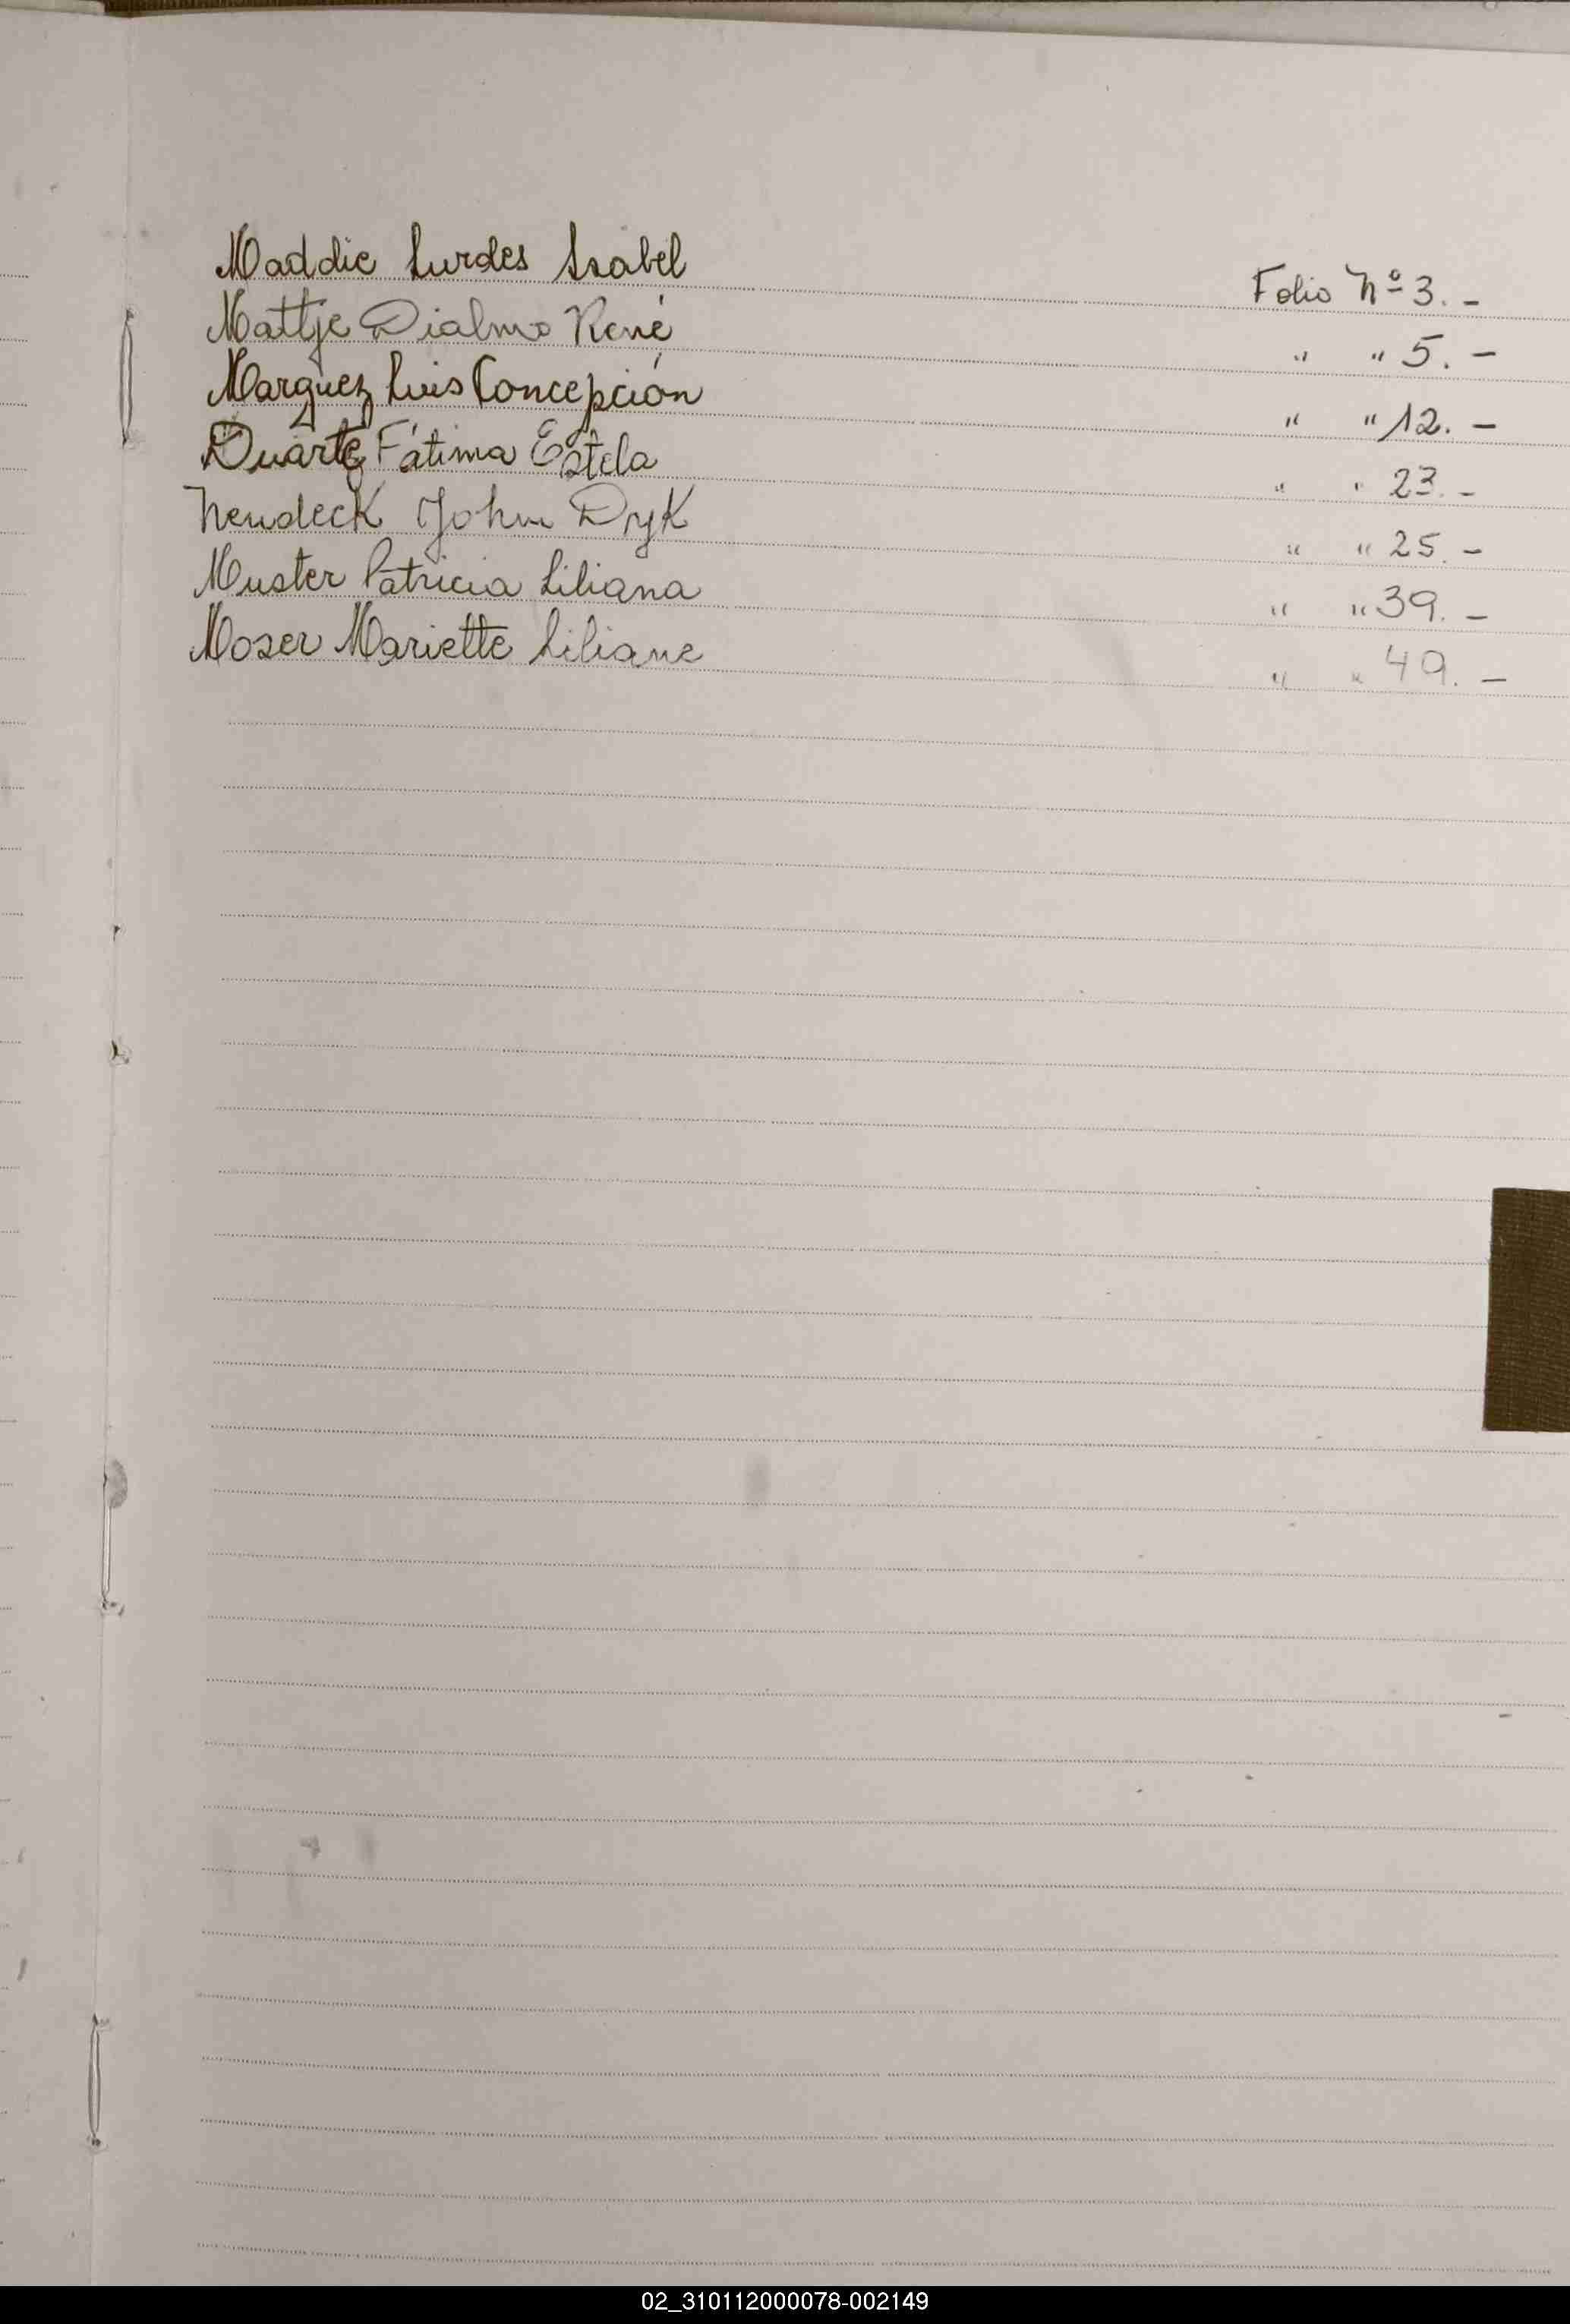 Maddie Lurdes Isabel Folio Nº 3. -
Mattje Dialmo René " " 5. -
Marquez Luis Concepción " " 12. -
Duarte Fátima Estela " " 23. -
Neudeck John Dryk " " 25. -
Muster Patricia Liliana " " 39. -
Moser Mariette Liliane " " 49. -
02_310112000078-002149